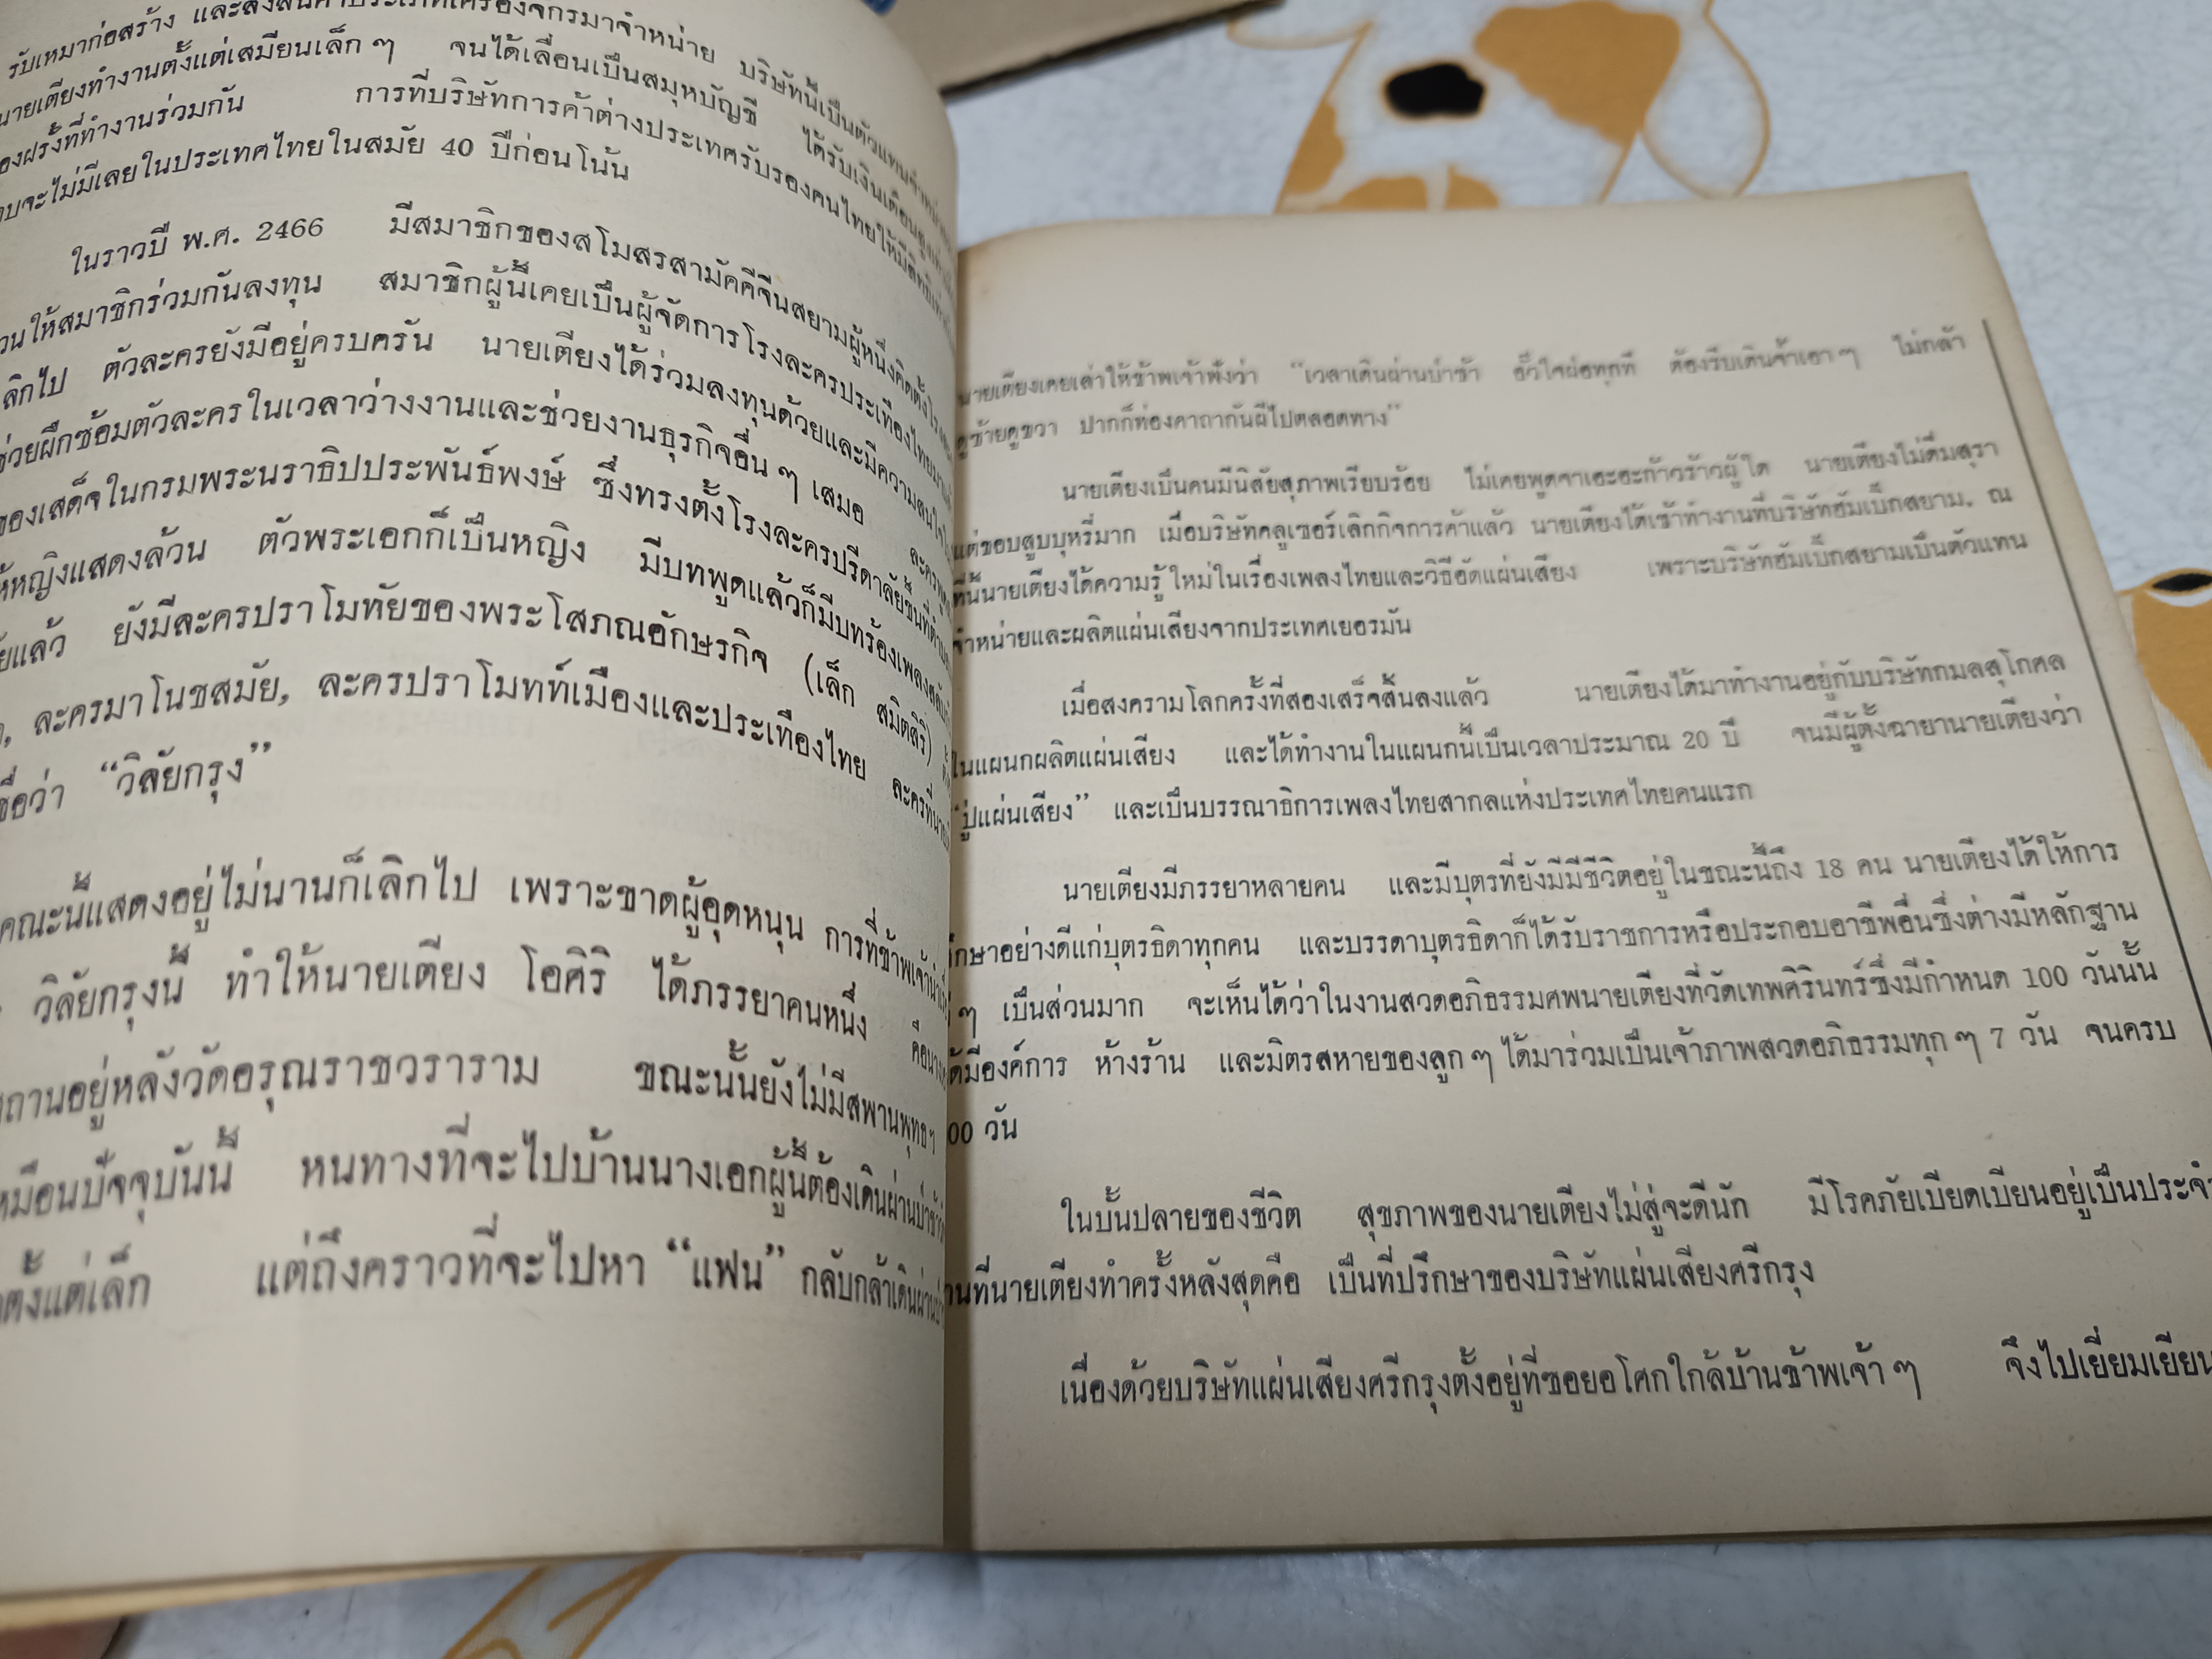 รับเหมาก่อสร้าง และสั่งสินค้าประเภทเครื่องจักรมาจำหน่าย บริษัทนี้เป็นตัวแทนจำหน่าย
นายเตียงทำงานตั้งแต่เสมียนเล็ก ๆ จนได้เลื่อนเป็นสมุหบัญชี ได้รับเงินเดือน
ของฝรั่งที่ทำงานร่วมกัน การที่บริษัทการค้าต่างประเทศรับรองคนไทยให้มีสิทธิ
จะไม่มีเลยในประเทศไทยในสมัย 40 ปีก่อนโน้น
ในราวปี พ.ศ. 2466 มีสมาชิกของสโมสรสามัคคีจีนสยามผู้หนึ่งคิดตั้งโรง
วนให้สมาชิกร่วมกันลงทุน สมาชิกผู้นี้เคยเป็นผู้จัดการโรงละครประเทืองไทยมา
ลิกไป ตัวละครยังมีอยู่ครบครัน นายเตียงได้ร่วมลงทุนด้วยและมีความสนใจ
ช่วยฝึกซ้อมตัวละครในเวลาว่างงานและช่วยงานธุรกิจอื่น ๆ เสมอ
ของเสด็จในกรมพระนราธิปประพันธ์พงษ์ ซึ่งทรงตั้งโรงละครปรีดาลัยขึ้นที่
ห้หญิงแสดงล้วน ตัวพระเอกก็เป็นหญิง มีบทพูดแล้วก็มีบทร้องเพลง
ยแล้ว ยังมีละครปราโมทัยของพระโสภณอักษรกิจ (เล็ก สมิตสิริ)
, ละครมาโนชสมัย, ละครปราโมทท์เมืองและประเทืองไทย ละครที่นาย
ชื่อว่า “วิลัยกรุง”
คณะนี้แสดงอยู่ไม่นานก็เลิกไป เพราะขาดผู้อุดหนุน การที่ข้าพเจ้านำ
วิลัยกรุงนี้ ทำให้นายเตียง โอศิริ ได้ภรรยาคนหนึ่ง คือนาง
ถานอยู่หลังวัดอรุณราชวราราม ขณะนั้นยังไม่มีสพานพุทธฯ
หมือนปัจจุบันนี้ หนทางที่จะไปบ้านนางเอกผู้นี้ต้องเดินผ่านป่าช้า
ตั้งแต่เล็ก แต่ถึงคราวที่จะไปหา “แฟน” กลับกล้าเดินผ่าน
นายเตียงเคยเล่าให้ข้าพเจ้าฟังว่า “เวลาเดินผ่านป่าช้า หัวใจฝ่อทุกที ต้องรีบเดินจ้ำเอา ๆ ไม่กล้า
ดูซ้ายดูขวา ปากก็ท่องคาถากันผีไปตลอดทาง”
นายเตียงเป็นคนมีนิสัยสุภาพเรียบร้อย ไม่เคยพูดจาเอะอะก้าวร้าวผู้ใด นายเตียงไม่ดื่มสุรา
แต่ชอบสูบบุหรี่มาก เมื่อบริษัทคลูเซอร์เลิกกิจการค้าแล้ว นายเตียงได้เข้าทำงานที่บริษัทฮัมเบ็กสยาม, ณ
ที่นี้นายเตียงได้ความรู้ใหม่ในเรื่องเพลงไทยและวิธีอัดแผ่นเสียง เพราะบริษัทฮัมเบ็กสยามเป็นตัวแทน
จำหน่ายและผลิตแผ่นเสียงจากประเทศเยอรมัน
เมื่อสงครามโลกครั้งที่สองเสร็จสิ้นลงแล้ว นายเตียงได้มาทำงานอยู่กับบริษัทกมลสุโกศล
ในแผนกผลิตแผ่นเสียง และได้ทำงานในแผนกนี้เป็นเวลาประมาณ 20 ปี จนมีผู้ตั้งฉายานายเตียงว่า
“ปู่แผ่นเสียง” และเป็นบรรณาธิการเพลงไทยสากลแห่งประเทศไทยคนแรก
นายเตียงมีภรรยาหลายคน และมีบุตรที่ยังมีมีชีวิตอยู่ในขณะนี้ถึง 18 คน นายเตียงได้ให้การ
ศึกษาอย่างดีแก่บุตรธิดาทุกคน และบรรดาบุตรธิดาก็ได้รับราชการหรือประกอบอาชีพอื่นซึ่งต่างมีหลักฐาน
ๆ เป็นส่วนมาก จะเห็นได้ว่าในงานสวดอภิธรรมศพนายเตียงที่วัดเทพศิรินทร์ซึ่งมีกำหนด 100 วันนั้น
ได้มีองค์การ ห้างร้าน และมิตรสหายของลูก ๆ ได้มาร่วมเป็นเจ้าภาพสวดอภิธรรมทุก ๆ 7 วัน จนครบ
00 วัน
ในบั้นปลายของชีวิต สุขภาพของนายเตียงไม่สู่จะดีนัก มีโรคภัยเบียดเบียนอยู่เป็นประจำ
านที่นายเตียงทำครั้งหลังสุดคือ เป็นที่ปรึกษาของบริษัทแผ่นเสียงศรีกรุง
เนื่องด้วยบริษัทแผ่นเสียงศรีกรุงตั้งอยู่ที่ซอยอโศกใกล้บ้านข้าพเจ้า ๆ จึงไปเยี่ยมเยียน